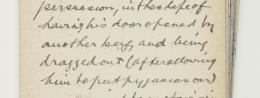 persuasion, in the hope of
having his door opened by
another key, and being
dragged out (after allowing
him to put pyjamas on)